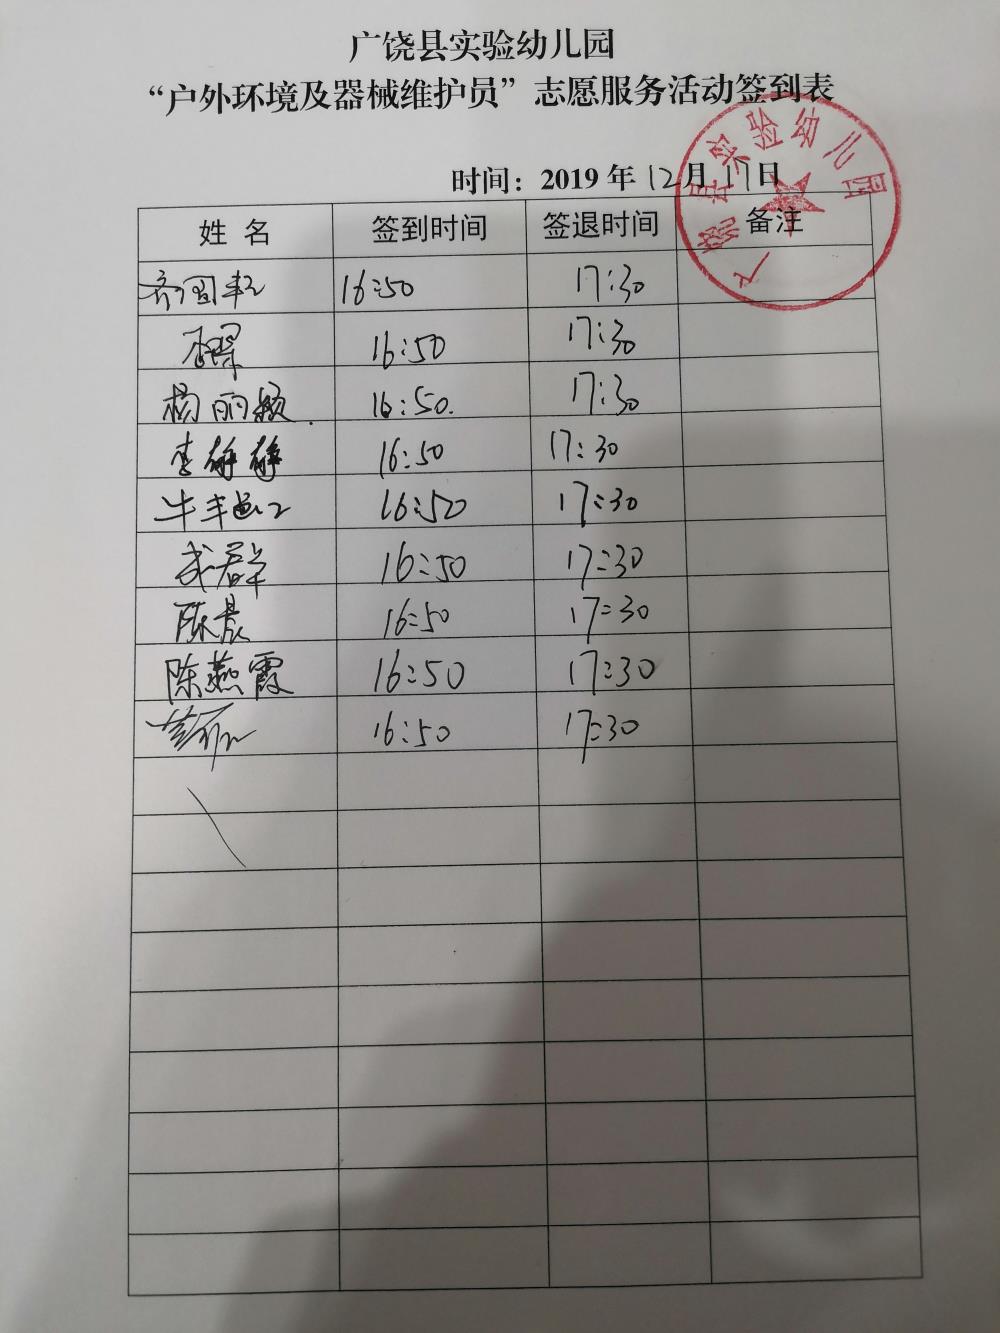 广饶县实验幼儿园
“户外环境及器械维护员”志愿服务活动签到表
时间：2019年12月17日
广饶县实验幼儿园
姓 名 签到时间 签退时间 备注
16:50 17:30
16:50 17:30
杨丽颖 16:50. 17:30
李静静 16:50 17:30
16:50 17:30
成群 16:50 17:30
陈晨 16:50 17:30
陈燕霞 16:50 17:30
16:50 17:30